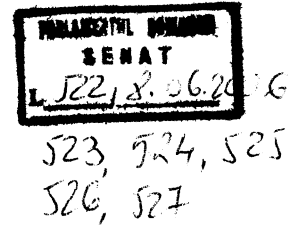 PARLAMENTUL ROMANIEI
SENAT
L 522, 8.06.2006
523, 524, 525
526, 527